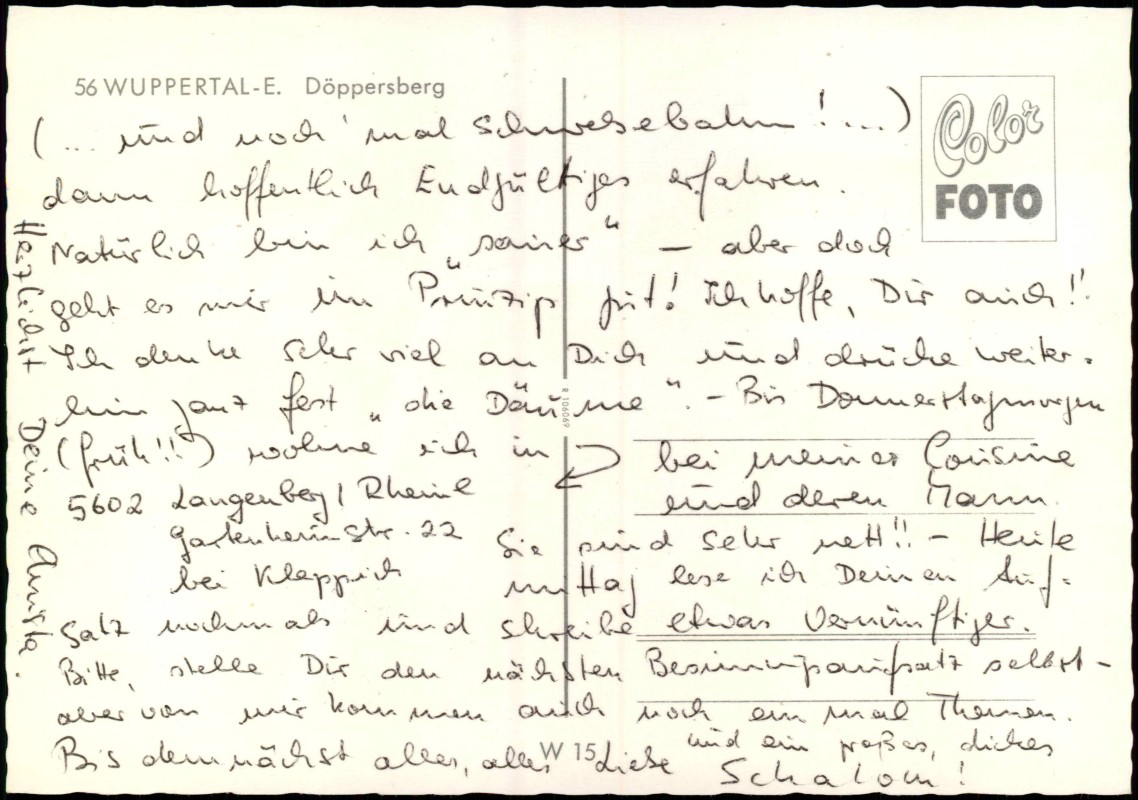 56 WUPPERTAL-E. Döppersberg
Color
FOTO
(... und noch 'mal Schwebebahn! ...)
dann hoffentlich Endgültiges erfahren.
Natürlich bin ich „sauer“ – aber doch
geht es mir im „Prinzip“ gut! Ich hoffe, Dir auch!!
Ich denke sehr viel an Dich und drücke weiter-
hin ganz fest „die Däume“. – Bis Donnerstagmorgen
(früh!!) wohne ich in
bei meiner Cousine
und deren Mann.
5602 Langenberg / Rheinl
Gartenheimstr. 22
bei Kleppich
Sie sind sehr nett!! – Heute
mittag lese ich Deinen Auf-
satz nochmals und schreibe etwas Vernünftiger.
Bitte, stelle Dir den nächsten Besinnungsaufsatz selbst –
aber von mir kommen auch noch ein mal Themen.
Bis demnächst alles, alles Liebe und ein großes, dickes
Schalom!
Herzlichst Deine
R 106069
W 15